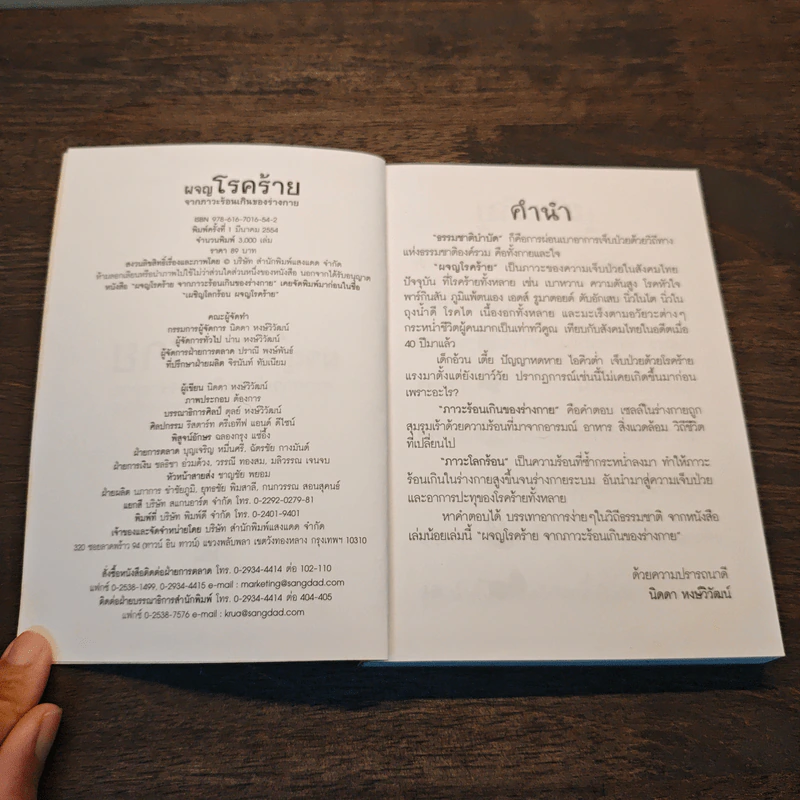 ผจญโรคร้าย
จากภาวะร้อนเกินของร่างกาย
ISBN 978-616-7016-54-2
พิมพ์ครั้งที่ 1 มีนาคม 2554
จำนวนพิมพ์ 3,000 เล่ม
ราคา 89 บาท
สงวนลิขสิทธิ์เรื่องและภาพโดย © บริษัท สำนักพิมพ์แสงแดด จำกัด
ห้ามลอกเลียนหรือถ่ายภาพไม่ใช้ไม่ว่าส่วนใดส่วนหนึ่งของหนังสือ นอกจากได้รับอนุญาต
หนังสือ "ผจญโรคร้าย จากภาวะร้อนเกินของร่างกาย" เคยจัดพิมพ์มาก่อนในชื่อ
"เผชิญโลกร้อน ผจญโรคร้าย"
คณะผู้จัดทำ
กรรมการผู้จัดการ นิดดา หงษ์วิวัฒน์
ผู้จัดการทั่วไป น่าน หงษ์วิวัฒน์
ผู้จัดการฝ่ายการตลาด ปราณี พงษ์พันธ์
ที่ปรึกษาฝ่ายผลิต จิรนันท์ ทับเนียม
ผู้เขียน นิดดา หงษ์วิวัฒน์
ภาพประกอบ ต้องการ
บรรณาธิการศิลป์ ตุลย์ หงษ์วิวัฒน์
ศิลปกรรม รีสตาร์ท ครีเอทีฟ แอนด์ ดีไซน์
พิสูจน์อักษร ฉลองกรุง แซ่อึ้ง
ฝ่ายการตลาด บุญเจริญ หมื่นศรี, ฉัตรชัย กางมันต์
ฝ่ายการเงิน ชลธิชา อ่วมด้วง, วรรณี ทองสม, มลิวรรณ เจนจบ
หัวหน้าสายส่ง ชาญชัย พยอม
ฝ่ายผลิต นภาการ ชำชัยภูมิ, ยุทธชัย พิมสาลี, กนกวรรณ สอนสุคนธ์
แยกสี บริษัท สแกนอาร์ต จำกัด โทร. 0-2292-0279-81
พิมพ์ที่ บริษัท พิมพ์ดี จำกัด โทร. 0-2401-9401
เจ้าของและจัดจำหน่ายโดย บริษัท สำนักพิมพ์แสงแดด จำกัด
320 ซอยลาดพร้าว 94 (ทาวน์ อิน ทาวน์) แขวงพลับพลา เขตวังทองหลาง กรุงเทพฯ 10310
สั่งซื้อหนังสือติดต่อฝ่ายการตลาด โทร. 0-2934-4414 ต่อ 102-110
แฟกซ์ 0-2538-1499, 0-2934-4415 e-mail : marketing@sangdad.com
ติดต่อฝ่ายบรรณาธิการสำนักพิมพ์ โทร. 0-2934-4414 ต่อ 404-405
แฟกซ์ 0-2538-7576 e-mail : krua@sangdad.com
คำนำ
"ธรรมชาติบำบัด" ก็คือการผ่อนเบาอาการเจ็บป่วยด้วยวิถีทาง
แห่งธรรมชาติองค์รวม คือทั้งกายและใจ
"ผจญโรคร้าย" เป็นภาวะของความเจ็บป่วยในสังคมไทย
ปัจจุบัน ที่โรคร้ายทั้งหลาย เช่น เบาหวาน ความดันสูง โรคหัวใจ
พาร์กินสัน ภูมิแพ้ตนเอง เอดส์ รูมาตอยด์ ตับอักเสบ นิ่วในไต นิ่วใน
ถุงน้ำดี โรคไต เนื้องอกทั้งหลาย และมะเร็งตามอวัยวะต่างๆ
กระหน่ำชีวิตผู้คนมากเป็นเท่าทวีคูณ เทียบกับสังคมไทยในอดีตเมื่อ
40 ปีมาแล้ว
เด็กอ้วน เตี้ย ปัญญาหดหาย ไอคิวต่ำ เจ็บป่วยด้วยโรคร้าย
แรงมาตั้งแต่ยังเยาว์วัย ปรากฏการณ์เช่นนี้ไม่เคยเกิดขึ้นมาก่อน
เพราะอะไร?
"ภาวะร้อนเกินของร่างกาย" คือคำตอบ เซลล์ในร่างกายถูก
สุมรุมเร้าด้วยความร้อนที่มาจากอารมณ์ อาหาร สิ่งแวดล้อม วิถีชีวิต
ที่เปลี่ยนไป
"ภาวะโลกร้อน" เป็นความร้อนที่ซ้ำกระหน่ำลงมา ทำให้ภาวะ
ร้อนเกินในร่างกายสูงขึ้นจนร่างกายระบม อันนำมาสู่ความเจ็บป่วย
และอาการประทุของโรคร้ายทั้งหลาย
หาคำตอบได้ บรรเทาอาการง่ายๆในวิถีธรรมชาติ จากหนังสือ
เล่มน้อยเล่มนี้ "ผจญโรคร้าย จากภาวะร้อนเกินของร่างกาย"
ด้วยความปรารถนาดี
นิดดา หงษ์วิวัฒน์